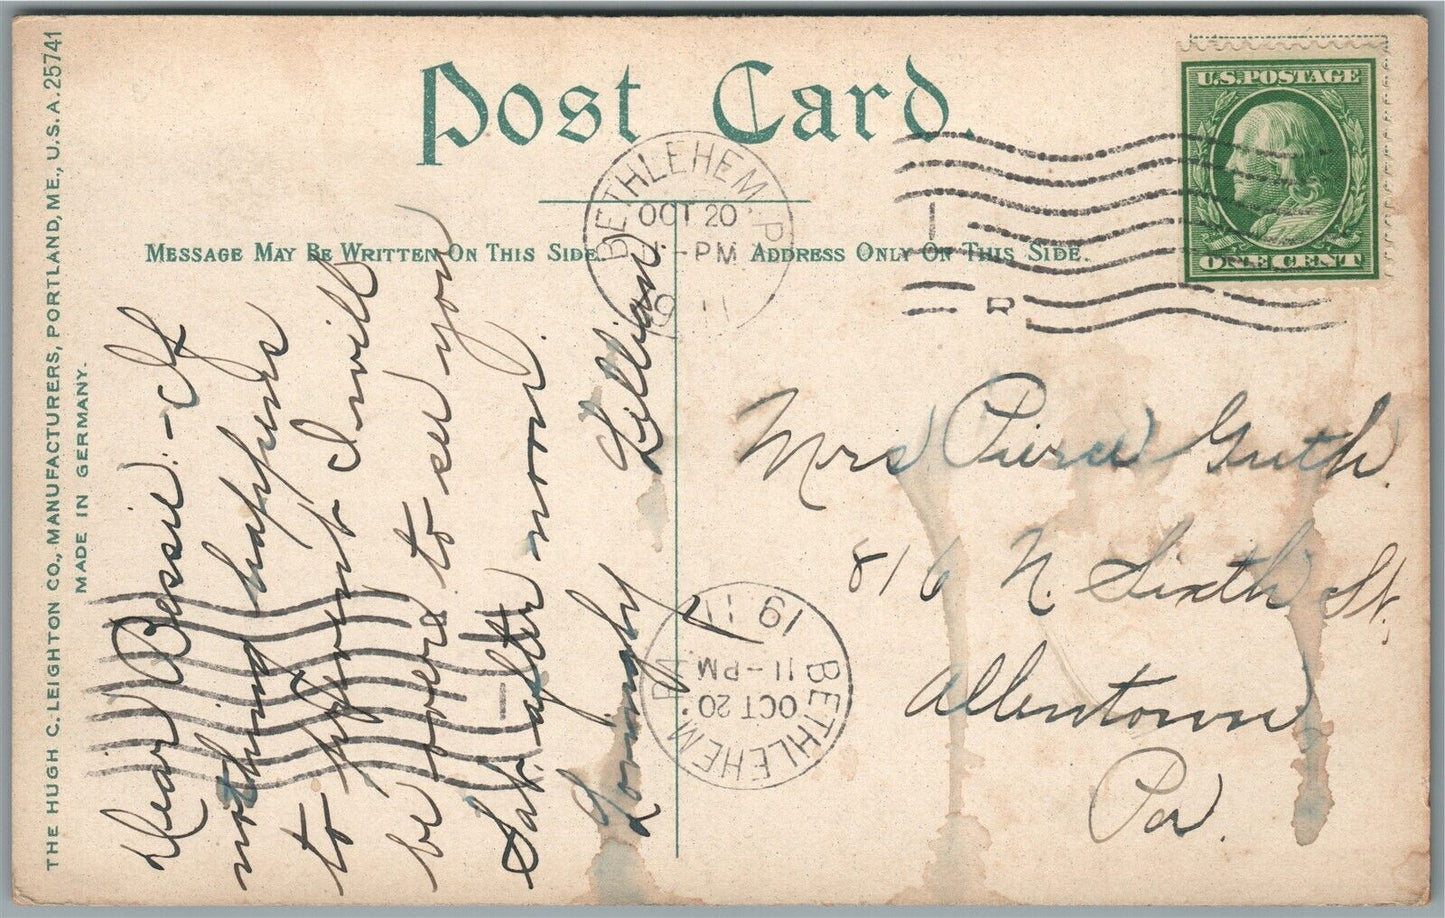 THE HUGH C. LEIGHTON CO., MANUFACTURERS, PORTLAND, ME., U.S.A. 25741
MADE IN GERMANY.
Post Card.
MESSAGE MAY BE WRITTEN ON THIS SIDE.
ADDRESS ONLY ON THIS SIDE.
BETHLEHEM, P
OCT 20
-PM
1911
U.S. POSTAGE
ONE CENT
Dear Bessie:- If
nothing happens
to prevent I will
be there to see you
Sat. after noon.
Lovingly Lillian
Mrs Pierce Guth.
816 N. Sixth St.
Allentown
Pa.
BETHLEHEM, PA.
OCT 20
11-PM
1911